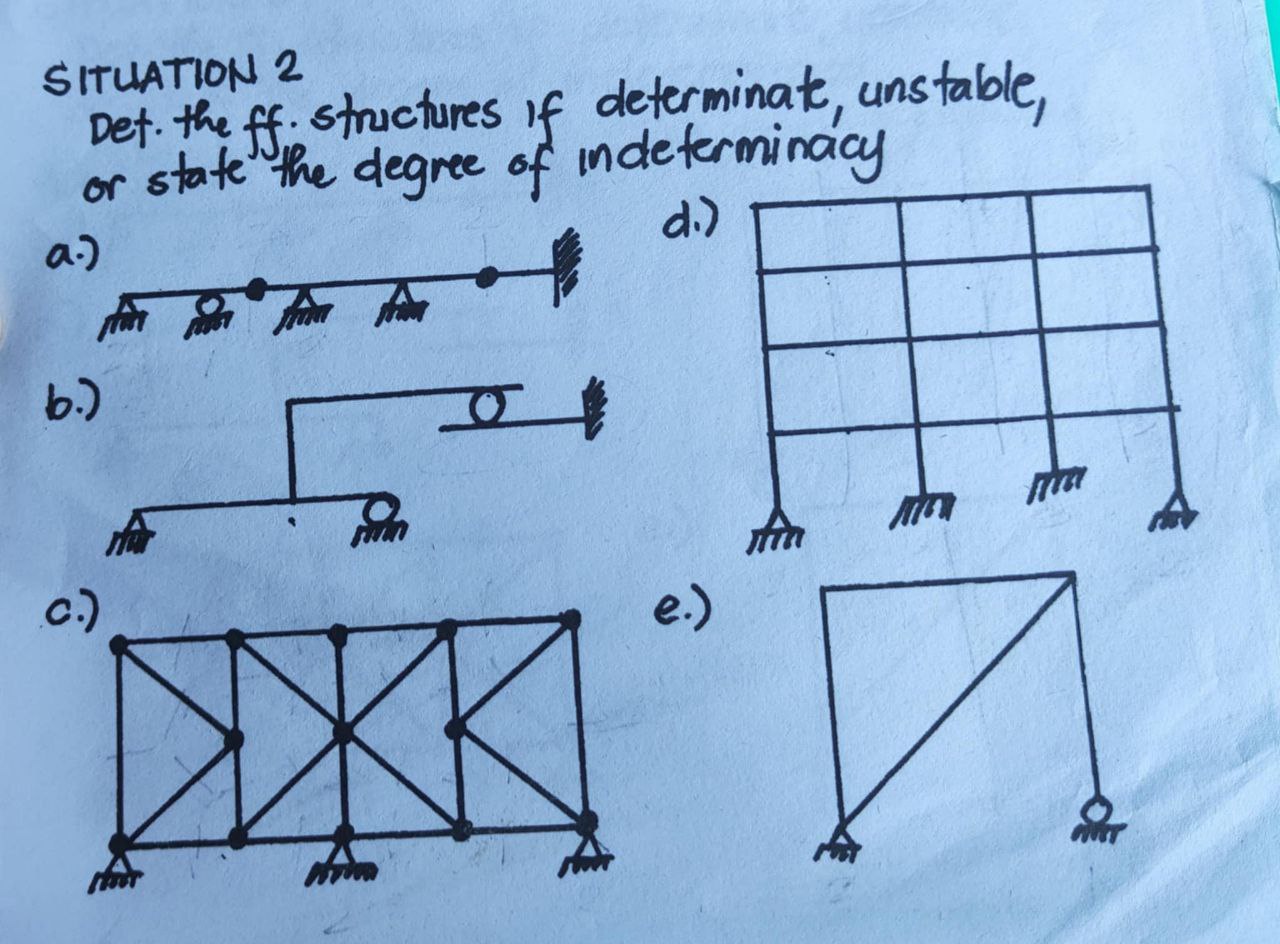 SITUATION 2
Det. the ff. structures if determinate, unstable,
or state the degree of indeterminacy
a.)
d.)
b.)
c.)
e.)